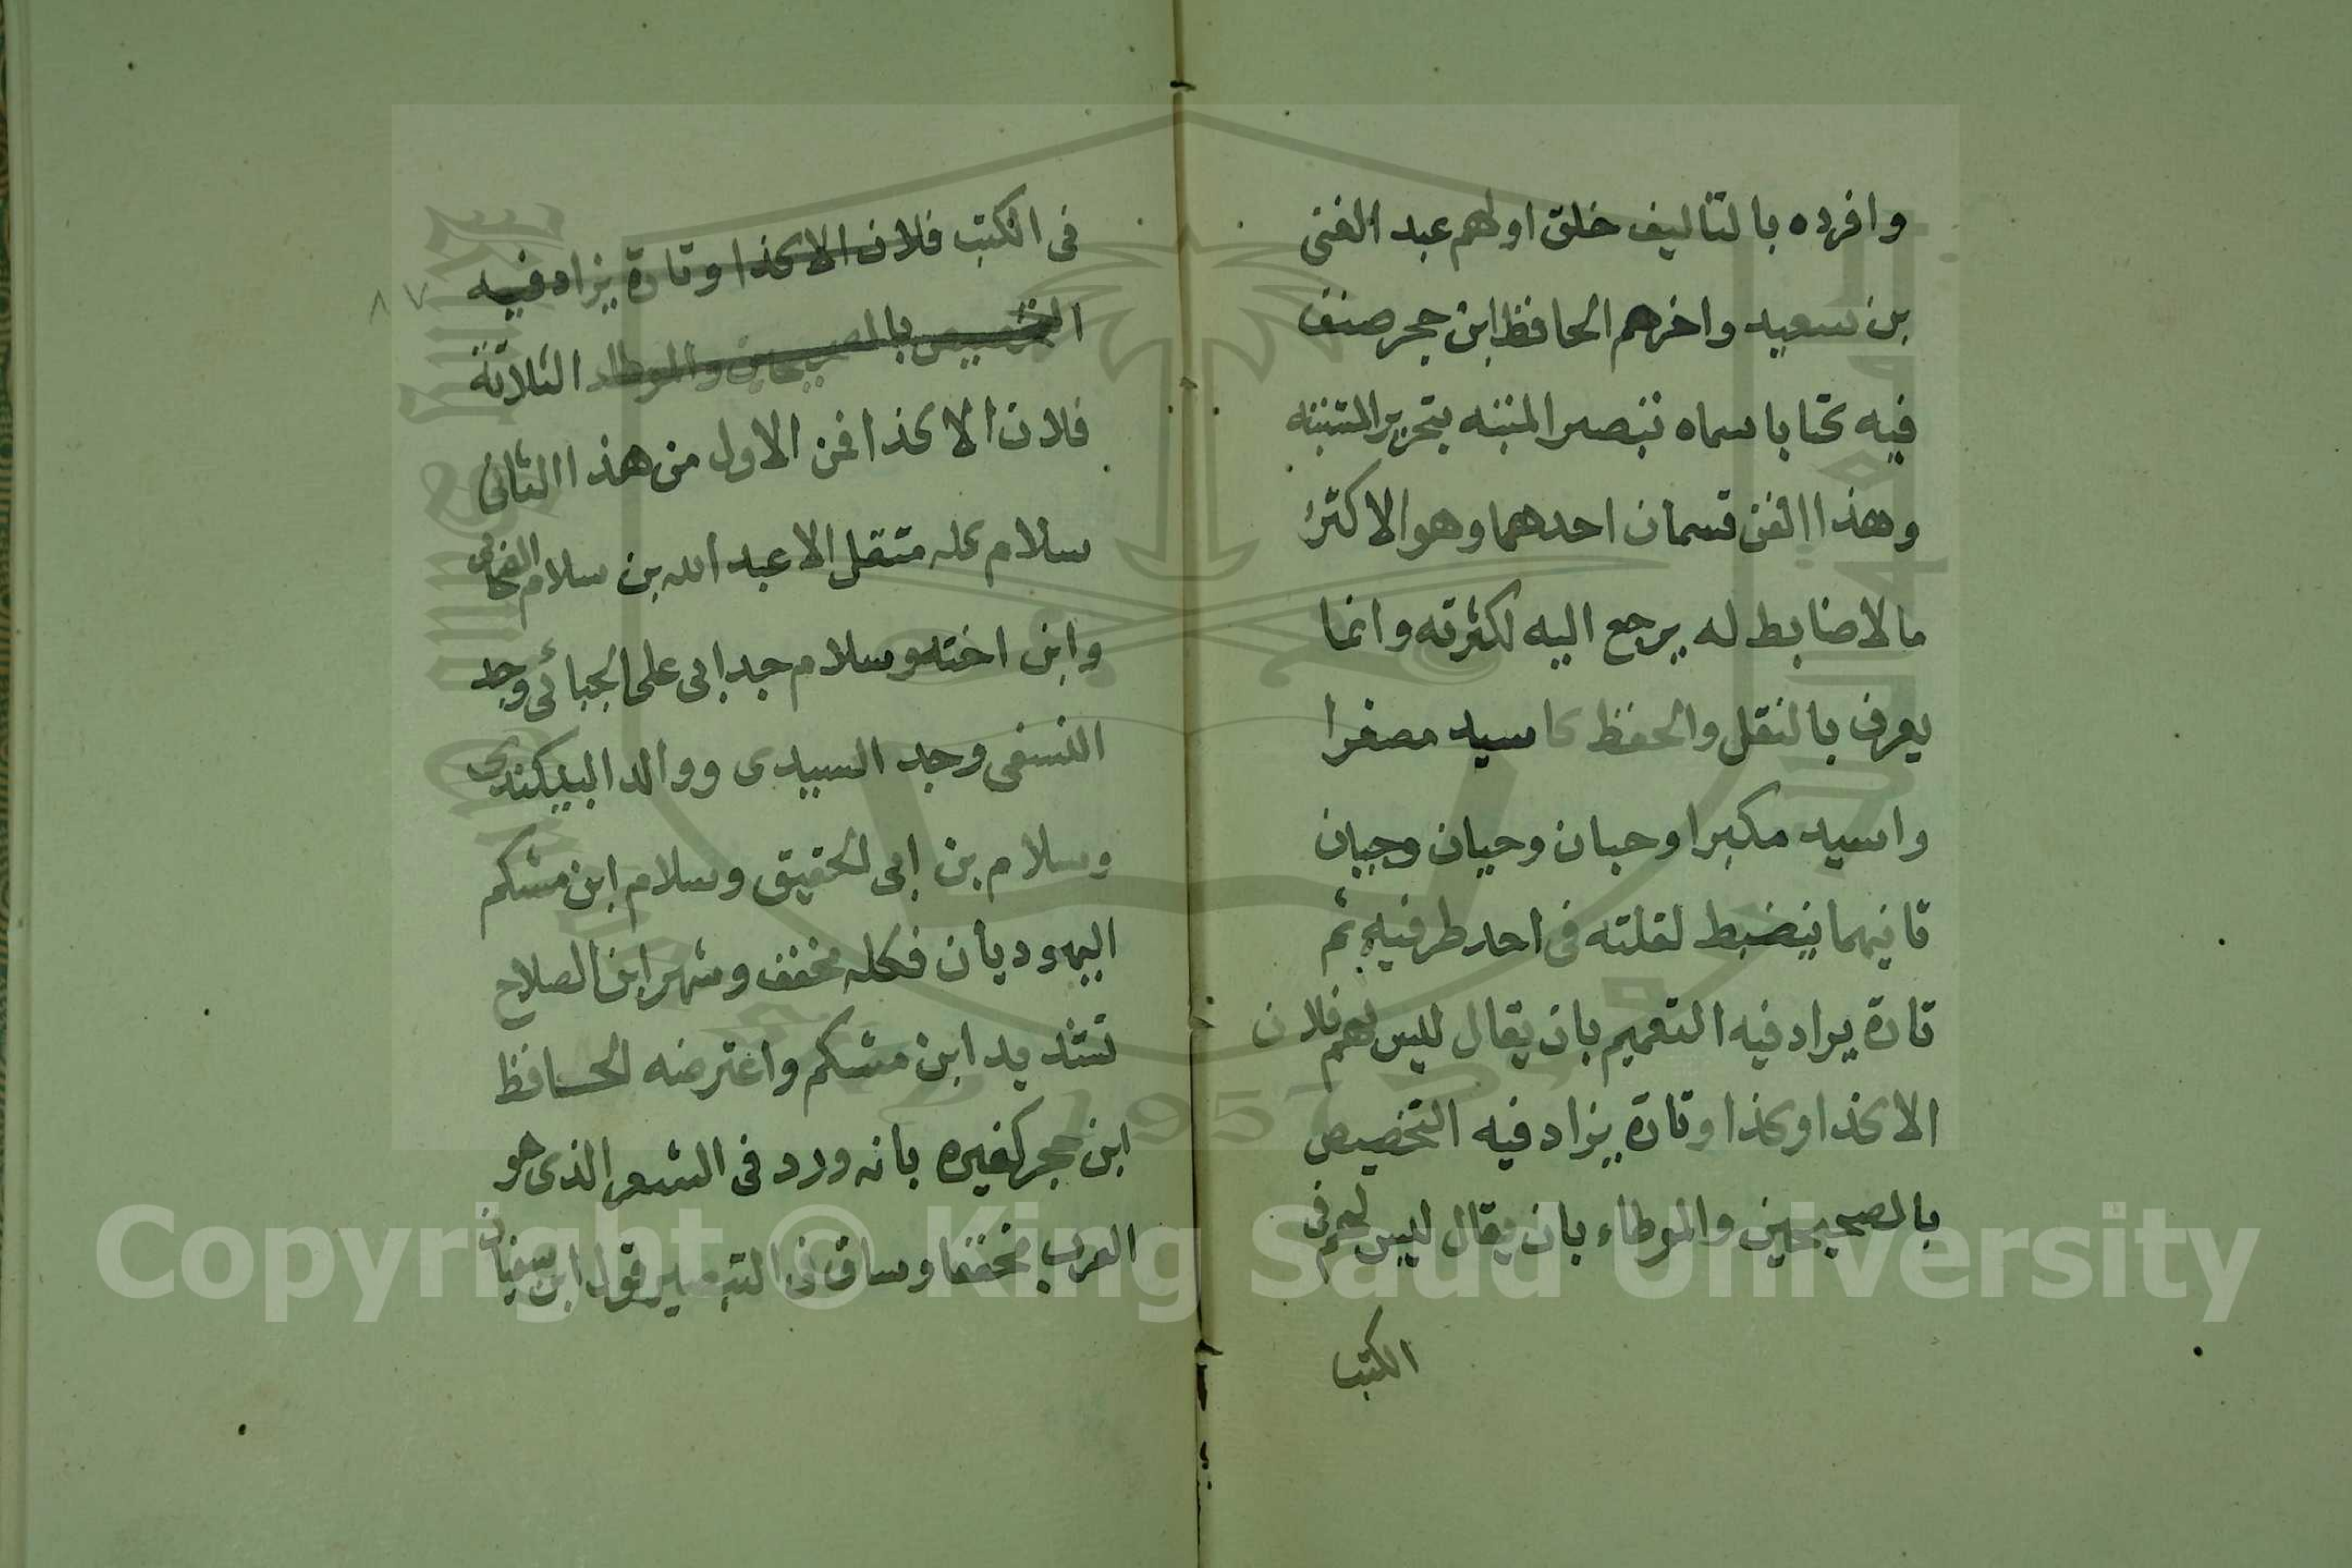 وافرده بالتاليف خلق اولهم عبد الغنى
بن سعيد واخرهم الحافظ ابن حجر صنف
فيه كتابا سماه تبصير المنتبه بتحرير المشتبه
وهذا الفن قسمان احدهما وهو الاكثر
ما لا ضابط له يرجع اليه لكثرته وانما
يعرف بالنقل والحفظ كاسيد مصغرا
واسيد مكبرا وحبان وحيان وجبان
ثانيهما ينضبط لقلته فى احد طرفيه ثم
تارة يراد فيه التعميم بان يقال ليس لهم فلان
الا كذا وكذا وتارة يزاد فيه التخصيص
بالصحيحين والموطاء بان يقال ليس لهم فى
الكتب
فى الكتب فلان الا كذا وتارة يزاد فيه
التخصيص بالصحيحين والموطاء الثلاثة
فلان الا كذا فمن الاول من هذا الثانى
سلام كله مثقل الا عبد الله بن سلام
وابن اخته وسلام جد ابى على الجبائى وجد
النسفى وجد السيدى ووالد البيكندى
وسلام بن ابى الحقيق وسلام ابن مشكم
اليهوديان فكله مخفف وشهر ابن الصلاح
تشديد ابن مشكم واعترضه الحافظ
ابن حجر كغيره بانه ورد فى الشعر الذى هو
العرب مخففا وساق فى التبصير قول ابى سفيان
٨٧
Copyright © King Saud University
1957